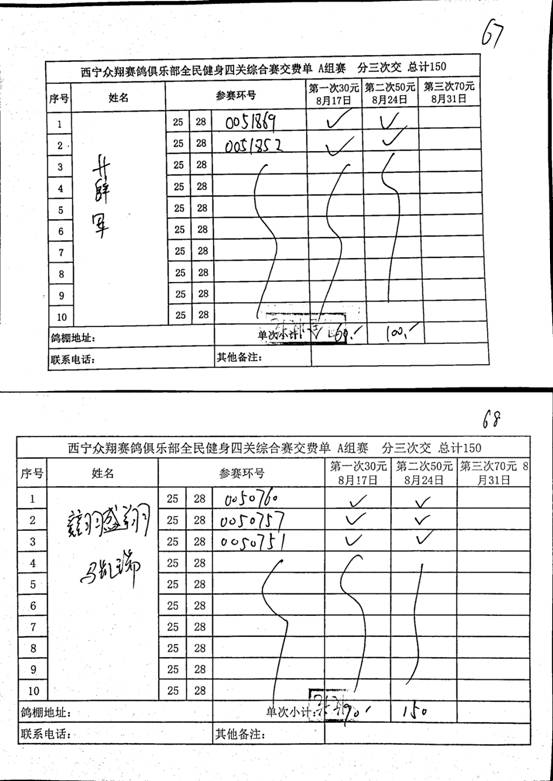 67
西宁众翔赛鸽俱乐部全民健身四关综合赛交费单 A组赛 分三次交 总计150
序号 姓名 参赛环号 第一次30元 8月17日 第二次50元 8月24日 第三次70元 8月31日
1 25 28 0051869 ✓ ✓
2 25 28 0051852 ✓ ✓
3 25 28
4 25 28
5 25 28
6 25 28
7 25 28
8 25 28
9 25 28
10 25 28
鸽棚地址: 单次小计: 60.- 100.-
联系电话: 其他备注:
68
西宁众翔赛鸽俱乐部全民健身四关综合赛交费单 A组赛 分三次交 总计150
序号 姓名 参赛环号 第一次30元 8月17日 第二次50元 8月24日 第三次70元 8月31日
1 25 28 0050760 ✓ ✓
2 25 28 0050757 ✓ ✓
3 25 28 0050751 ✓ ✓
4 25 28
5 25 28
6 25 28
7 25 28
8 25 28
9 25 28
10 25 28
鸽棚地址: 单次小计: 90.- 150
联系电话: 其他备注: